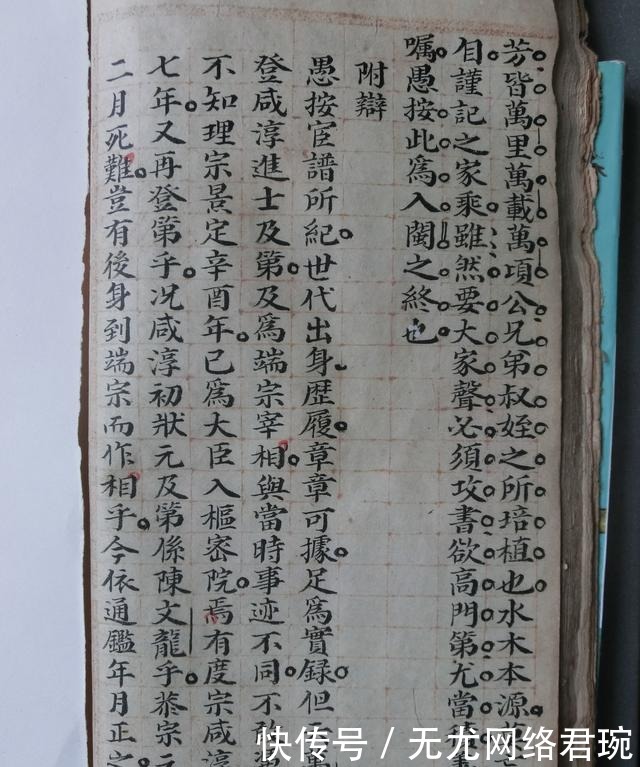 芳皆萬里萬載萬項公兄弟叔姪之所培植也水木本源
自謹記之家乘雖然要大家聲必須攻書欲高門第尤當
囑愚按此為入閩之終也
附辯
愚按宦譜所紀世代出身歷履章章可據足為實録但
登咸淳進士及第及為端宗宰相與當時事迹不同不
不知理宗景定辛酉年已為大臣入樞密院焉有度宗咸淳
七年又再登第乎况咸淳初狀元及第係陳文龍乎恭宗元
二月死難豈有後身到端宗而作相乎今依通鑑年月正之
快传号／无尤网络君琬